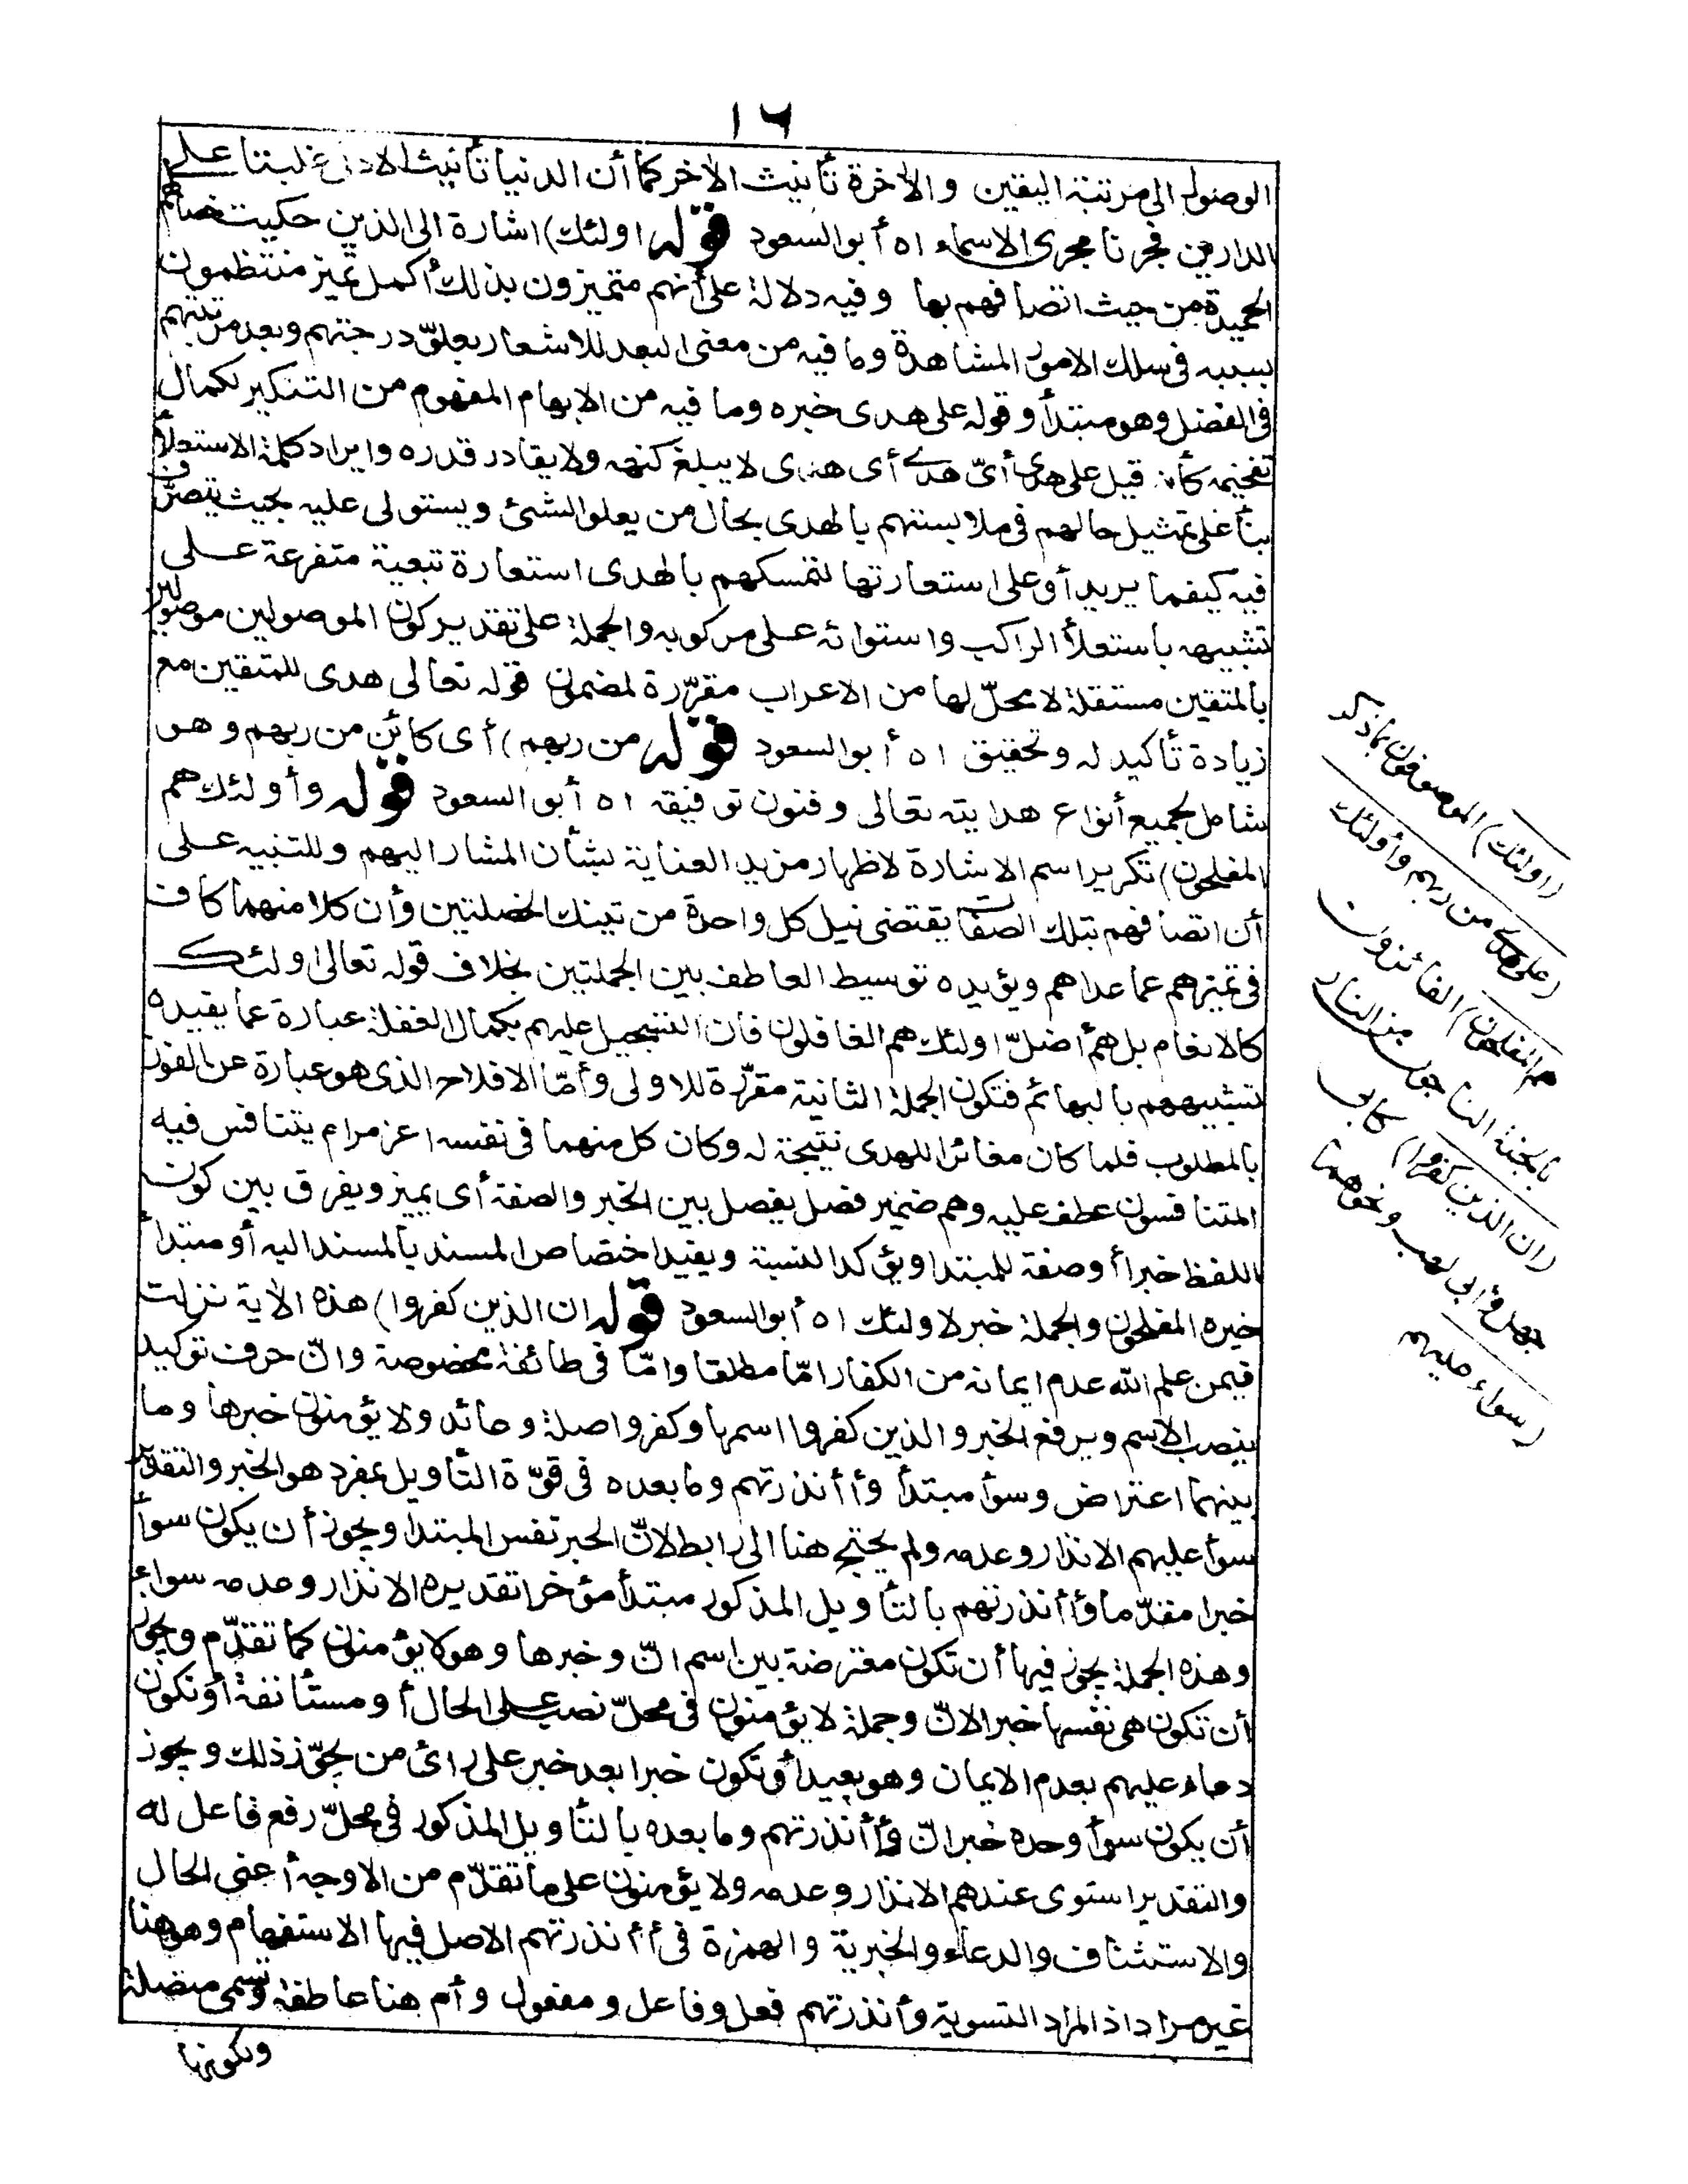 ١٦
الوصول الى مرتبة اليقين والآخرة تأنيث الآخر كما أن الدنيا تأنيث الادنى غلبتا على
الدارين فجرتا مجرى الاسماء اه أبو السعود قوله اولئك) اشارة الى الذين حكيت خصالهم
الحميدة من حيث اتصافهم بها وفيه دلالة على أنهم متميزون بذلك أكمل تميز منتظمون
بسببه فى سلك الامور المشاهدة وما فيه من معنى البعد للاشعار بعلوّ درجتهم وبعد مرتبتهم
فى الفضل وهو مبتدأ وقوله على هدى خبره وما فيه من الابهام المفهوم من التنكير لكمال
تفخيمه كأنه قيل على هدى أىّ هدى أى هدى لا يبلغ كنهه ولا يقادر قدره وايراد كلمة الاستعلاأ
بناأ على تمثيل حالهم فى ملابستهم بالهدى بحال من يعلو الشئ ويستولى عليه بحيث يتصرّف
فيه كيفما يريد أو على استعارتها لتمسكهم بالهدى استعارة تبعية متفرعة على
تشبيهه باستعلاأ الراكب واستوائه على مركوبه والجملة على تقدير كون الموصولين موصولين
بالمتقين مستقلة لا محلّ لها من الاعراب مقرّرة لمضمون قوله تعالى هدى للمتقين مع
زيادة تأكيد له وتحقيق اه أبو السعود قوله من ربهم) أى كائن من ربهم وهو
شامل لجميع أنواع هدايته تعالى وفنون توفيقه اه أبو السعود قوله وأولئك هم
المفلحون) تكرير اسم الاشارة لاظهار مزيد العناية بشأن المشار اليهم وللتنبيه على
أن اتصافهم بتلك الصفات يقتضى نيل كل واحدة من تينك الخصلتين وأن كلا منهما كاف
فى تميزهم عما عداهم ويؤيده توسيط العاطف بين الجملتين بخلاف قوله تعالى اولئك
كالانعام بل هم أضلّ اولئك هم الغافلون فان التسجيل عليهم بكمال الغفلة عبارة عما يفيده
تشبيههم بالبهائم فتكون الجملة الثانية مقرّرة للاولى وأمّا الافلاح الذى هو عبارة عن الفوز
بالمطلوب فلما كان مغائرا للهدى نتيجة له وكان كل منهما فى نفسه اعز مرام يتنافس فيه
المتنافسون عطف عليه وهم ضمير فصل يفصل بين الخبر والصفة أى يميز ويفرق بين كون
اللفظ خبرا أو صفة للمبتدا ويؤكد النسبة ويفيد اختصاص المسند بالمسند اليه أو مبتدأ
خبره المفلحون والجملة خبر لاولئك اه أبو السعود قوله ان الذين كفروا) هذه الآية نزلت
فيمن علم الله عدم ايمانه من الكفار امّا مطلقا وامّا فى طائفة مخصوصة وانّ حرف توكيد
ينصب الاسم ويرفع الخبر والذين كفروا اسمها وكفروا صلة وعائد ولا يؤمنون خبرها وما
بينهما اعتراض وسوأ مبتدأ وأأنذرتهم وما بعده فى قوّة التأويل بمفرد هو الخبر والتقدير
سوأ عليهم الانذار وعدمه ولم يحتج هنا الى رابط لانّ الخبر نفس المبتدا ويجوز أن يكون سوأ
خبرا مقدّما وأأنذرتهم بالتأويل المذكور مبتدأ مؤخرا تقديره الانذار وعدمه سواء
وهذه الجملة يجوز فيها أن تكون معترضة بين اسم انّ وخبرها وهو لا يؤمنون كما تقدّم ويجوز
أن تكون هى نفسها خبرا لانّ وجملة لا يؤمنون فى محلّ نصب على الحال أو مستأنفة أو تكون
دعاء عليهم بعدم الايمان وهو بعيد أو تكون خبرا بعد خبر على رائ من يجوّز ذلك ويجوز
أن يكون سوأ وحده خبر انّ وأأنذرتهم وما بعده بالتأويل المذكور فى محلّ رفع فاعل له
والتقدير استوى عندهم الانذار وعدمه ولا يؤمنون على ما تقدّم من الاوجه أعنى الحال
والاستئناف والدعاء والخبرية والهمزة فى أأنذرتهم الاصل فيها الاستفهام وهو هنا
غير مراد اذ المراد التسوية وأنذرتهم فعل وفاعل ومفعول وأم هنا عاطفة وتسمى متصلة
وتكونها
(اولئك) الموصوفون بما ذكر
(على هدى من ربهم وأولئك
هم المفلحون) الفائزون
بالجنة الناجون من النار
(ان الذين كفروا) كأبى
جهل وأبى لهب ونحوهما
(سواء عليهم